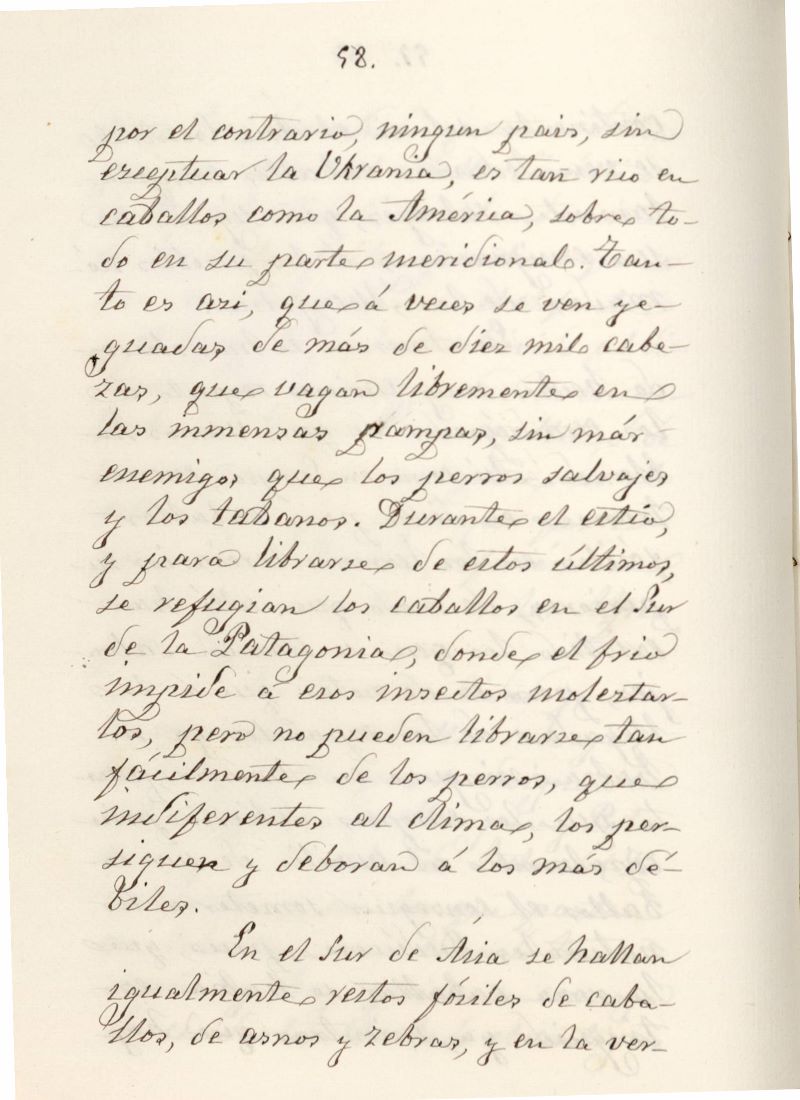 58.
por el contrario, ningun pais, sin
exceptuar la Ukrania, es tan rico en
caballos como la América, sobre to-
do en su parte meridional. Tan-
to es asi, que á veces se ven ye-
guadas de más de diez mil cabe-
zas, que vagan libremente en
las inmensas pampas, sin más
enemigos que los perros salvajes
y los tabanos. Durante el estio,
y para librarse de estos últimos,
se refugian los caballos en el Sur
de la Patagonia, donde el frio
impide á esos insectos molestar-
los, pero no pueden librarse tan
fácilmente de los perros, que
indiferentes al clima, los per-
siguen y deboran á los más dé-
biles.
En el Sur de Ásia se hallan
igualmente restos fósiles de caba-
llos, de asnos y zebras, y en la ver-